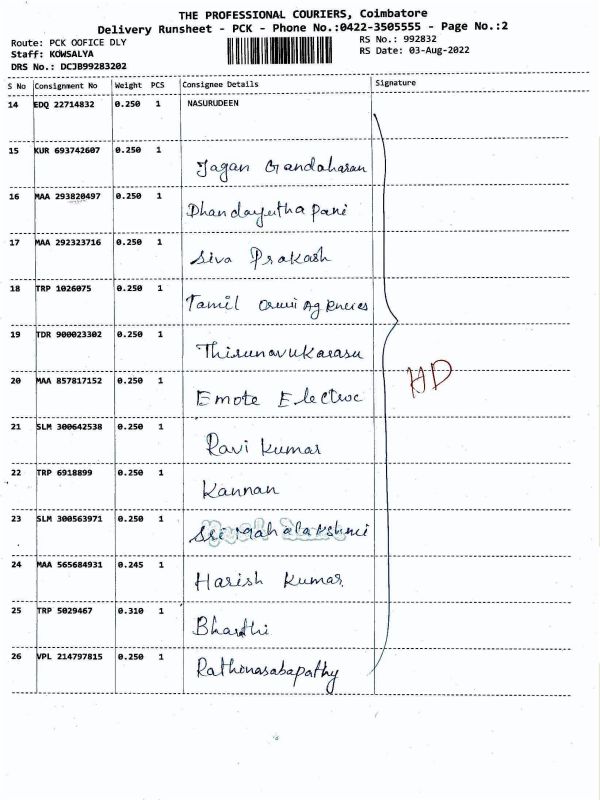 THE PROFESSIONAL COURIERS, Coimbatore
Delivery Runsheet - PCK - Phone No.:0422-3505555 - Page No.:2
Route: PCK OOFICE DLY
RS No.: 992832
Staff: KOWSALYA
RS Date: 03-Aug-2022
DRS No.: DCJB99283202
S No Consignment No Weight PCS Consignee Details Signature
14 EDQ 22714832 0.250 1 NASURUDEEN
15 KUR 693742607 0.250 1
Jagan Gandaharan
16 MAA 293820497 0.250 1
Dhandayutha pani
17 MAA 292323716 0.250 1
Siva Prakash
18 TRP 1026075 0.250 1
Tamil Agencies
19 TDR 900023302 0.250 1
Thirunavukarasu
20 MAA 857817152 0.250 1
HD
Emote Electric
21 SLM 300642538 0.250 1
Ravi Kumar
22 TRP 6918899 0.250 1
Kannan
23 SLM 300563971 0.250 1
Sri Mahalakshmi
24 MAA 565684931 0.245 1
Harish Kumar
25 TRP 5029467 0.310 1
Bharthi
26 VPL 214797815 0.250 1
Rathinasabapathy